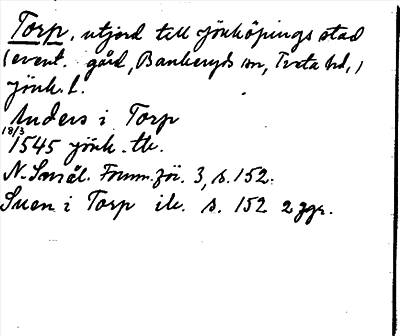 Torp, utjord till Jönköpings stad
(event. gård, Bankeryds sn, Tveta hd,)
Jönk. l.
Anders i Torp
18/3 1545 Jönk. tb.
N. Smål. Fornm.för. 3, s. 152.
Suen i Torp ib. s. 152 2 ggr.